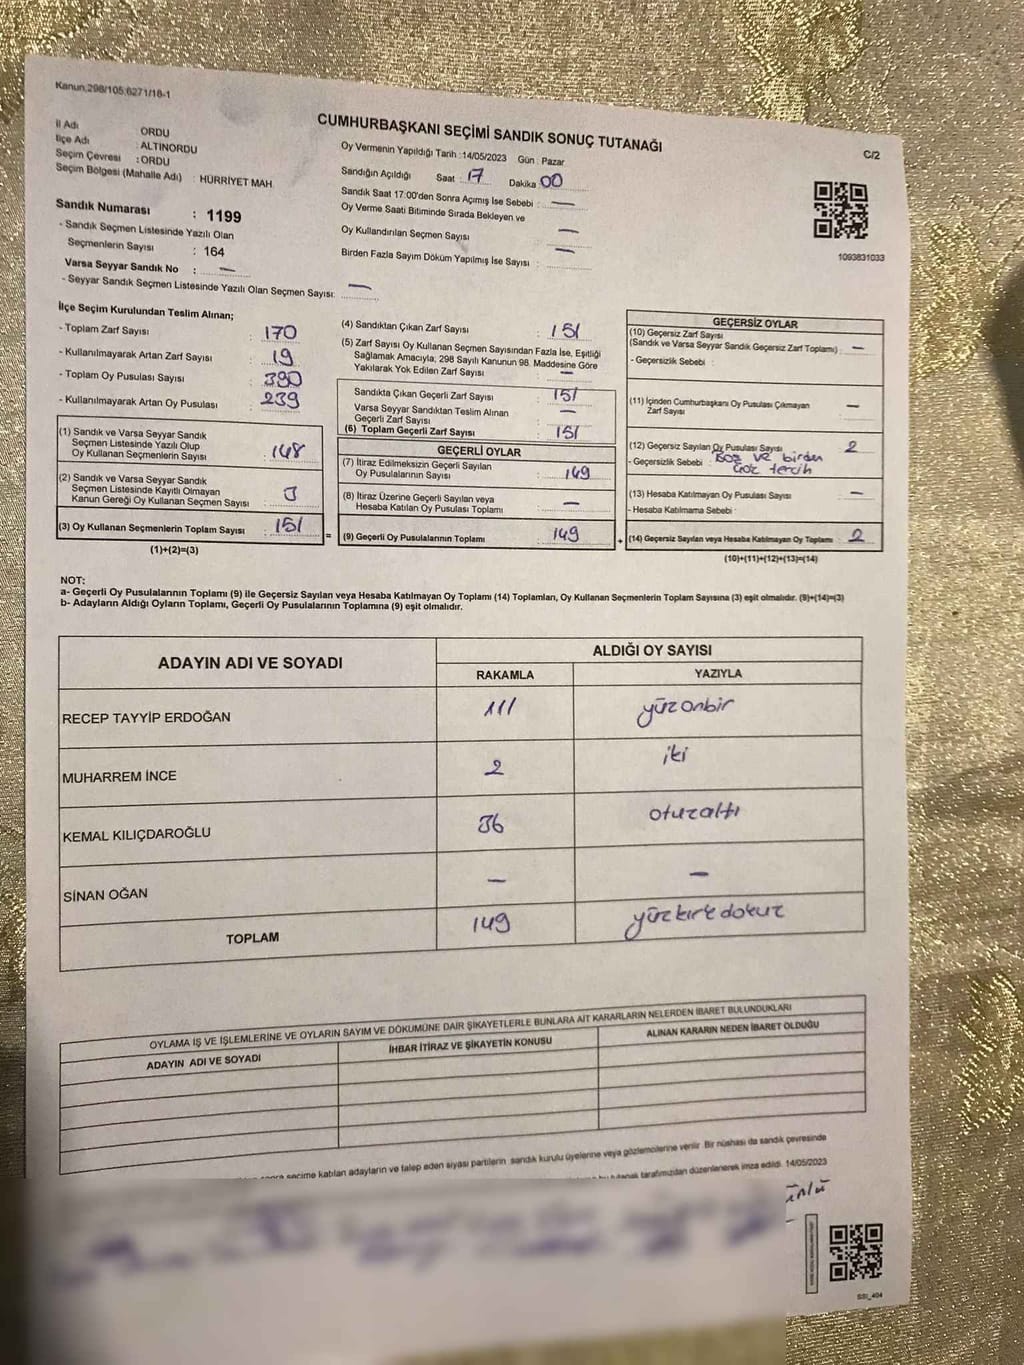 Kanun;298/105;6271/18-1
CUMHURBAŞKANI SEÇİMİ SANDIK SONUÇ TUTANAĞI
C/2
İl Adı ORDU
İlçe Adı : ALTINORDU
Seçim Çevresi : ORDU
Seçim Bölgesi (Mahalle Adı) : HÜRRİYET MAH.
Sandık Numarası : 1199
- Sandık Seçmen Listesinde Yazılı Olan
Seçmenlerin Sayısı : 164
Varsa Seyyar Sandık No : —
- Seyyar Sandık Seçmen Listesinde Yazılı Olan Seçmen Sayısı: —
Oy Vermenin Yapıldığı Tarih :14/05/2023 Gün : Pazar
Sandığın Açıldığı Saat : 17 Dakika : 00
Sandık Saat 17:00'den Sonra Açımış İse Sebebi : —
Oy Verme Saati Bitiminde Sırada Bekleyen ve
Oy Kullandırılan Seçmen Sayısı —
Birden Fazla Sayım Döküm Yapılmış İse Sayısı : —
1093831033
İlçe Seçim Kurulundan Teslim Alınan;
- Toplam Zarf Sayısı : 170
- Kullanılmayarak Artan Zarf Sayısı : 19
- Toplam Oy Pusulası Sayısı : 390
- Kullanılmayarak Artan Oy Pusulası : 239
(1) Sandık ve Varsa Seyyar Sandık
Seçmen Listesinde Yazılı Olup
Oy Kullanan Seçmenlerin Sayısı : 148
(2) Sandık ve Varsa Seyyar Sandık
Seçmen Listesinde Kayıtlı Olmayan
Kanun Gereği Oy Kullanan Seçmen Sayısı : 3
(3) Oy Kullanan Seçmenlerin Toplam Sayısı : 151
(1)+(2)=(3)
(4) Sandıktan Çıkan Zarf Sayısı : 151
(5) Zarf Sayısı Oy Kullanan Seçmen Sayısından Fazla İse, Eşitliği
Sağlamak Amacıyla, 298 Sayılı Kanunun 98. Maddesine Göre
Yakılarak Yok Edilen Zarf Sayısı : —
Sandıkta Çıkan Geçerli Zarf Sayısı : 151
Varsa Seyyar Sandıktan Teslim Alınan
Geçerli Zarf Sayısı : —
(6) Toplam Geçerli Zarf Sayısı : 151
GEÇERLİ OYLAR
(7) İtiraz Edilmeksizin Geçerli Sayılan
Oy Pusulalarının Sayısı : 149
(8) İtiraz Üzerine Geçerli Sayılan veya
Hesaba Katılan Oy Pusulası Toplamı : —
= (9) Geçerli Oy Pusulalarının Toplamı : 149
GEÇERSİZ OYLAR
(10) Geçersiz Zarf Sayısı
(Sandık ve Varsa Seyyar Sandık Geçersiz Zarf Toplamı) : —
- Geçersizlik Sebebi :
(11) İçinden Cumhurbaşkanı Oy Pusulası Çıkmayan
Zarf Sayısı —
(12) Geçersiz Sayılan Oy Pusulası Sayısı : 2
- Geçersizlik Sebebi : Boş ve birden
tercih
(13) Hesaba Katılmayan Oy Pusulası Sayısı —
- Hesaba Katılmama Sebebi :
+ (14) Geçersiz Sayılan veya Hesaba Katılmayan Oy Toplamı : 2
(10)+(11)+(12)+(13)=(14)
NOT:
a- Geçerli Oy Pusulalarının Toplamı (9) ile Geçersiz Sayılan veya Hesaba Katılmayan Oy Toplamı (14) Toplamları, Oy Kullanan Seçmenlerin Toplam Sayısına (3) eşit olmalıdır. (9)+(14)=(3)
b- Adayların Aldığı Oyların Toplamı, Geçerli Oy Pusulalarının Toplamına (9) eşit olmalıdır.
ADAYIN ADI VE SOYADI ALDIĞI OY SAYISI
RAKAMLA YAZIYLA
RECEP TAYYİP ERDOĞAN 111 yüzonbir
MUHARREM İNCE 2 iki
KEMAL KILIÇDAROĞLU 36 otuzaltı
SİNAN OĞAN — —
TOPLAM 149 yüzkırkdokuz
OYLAMA İŞ VE İŞLEMLERİNE VE OYLARIN SAYIM VE DÖKÜMÜNE DAİR ŞİKAYETLERLE BUNLARA AİT KARARLARIN NELERDEN İBARET BULUNDUKLARI
ADAYIN ADI VE SOYADI İHBAR İTİRAZ VE ŞİKAYETİN KONUSU ALINAN KARARIN NEDEN İBARET OLDUĞU
seçime katılan adayların ve talep eden siyasi partilerin sandık kurulu üyelerine veya gözlemcilerine verilir. Bir nüshası da sandık çevresinde
tutanak tarafımızdan düzenlenerek imza edildi. 14/05/2023
SSI_404